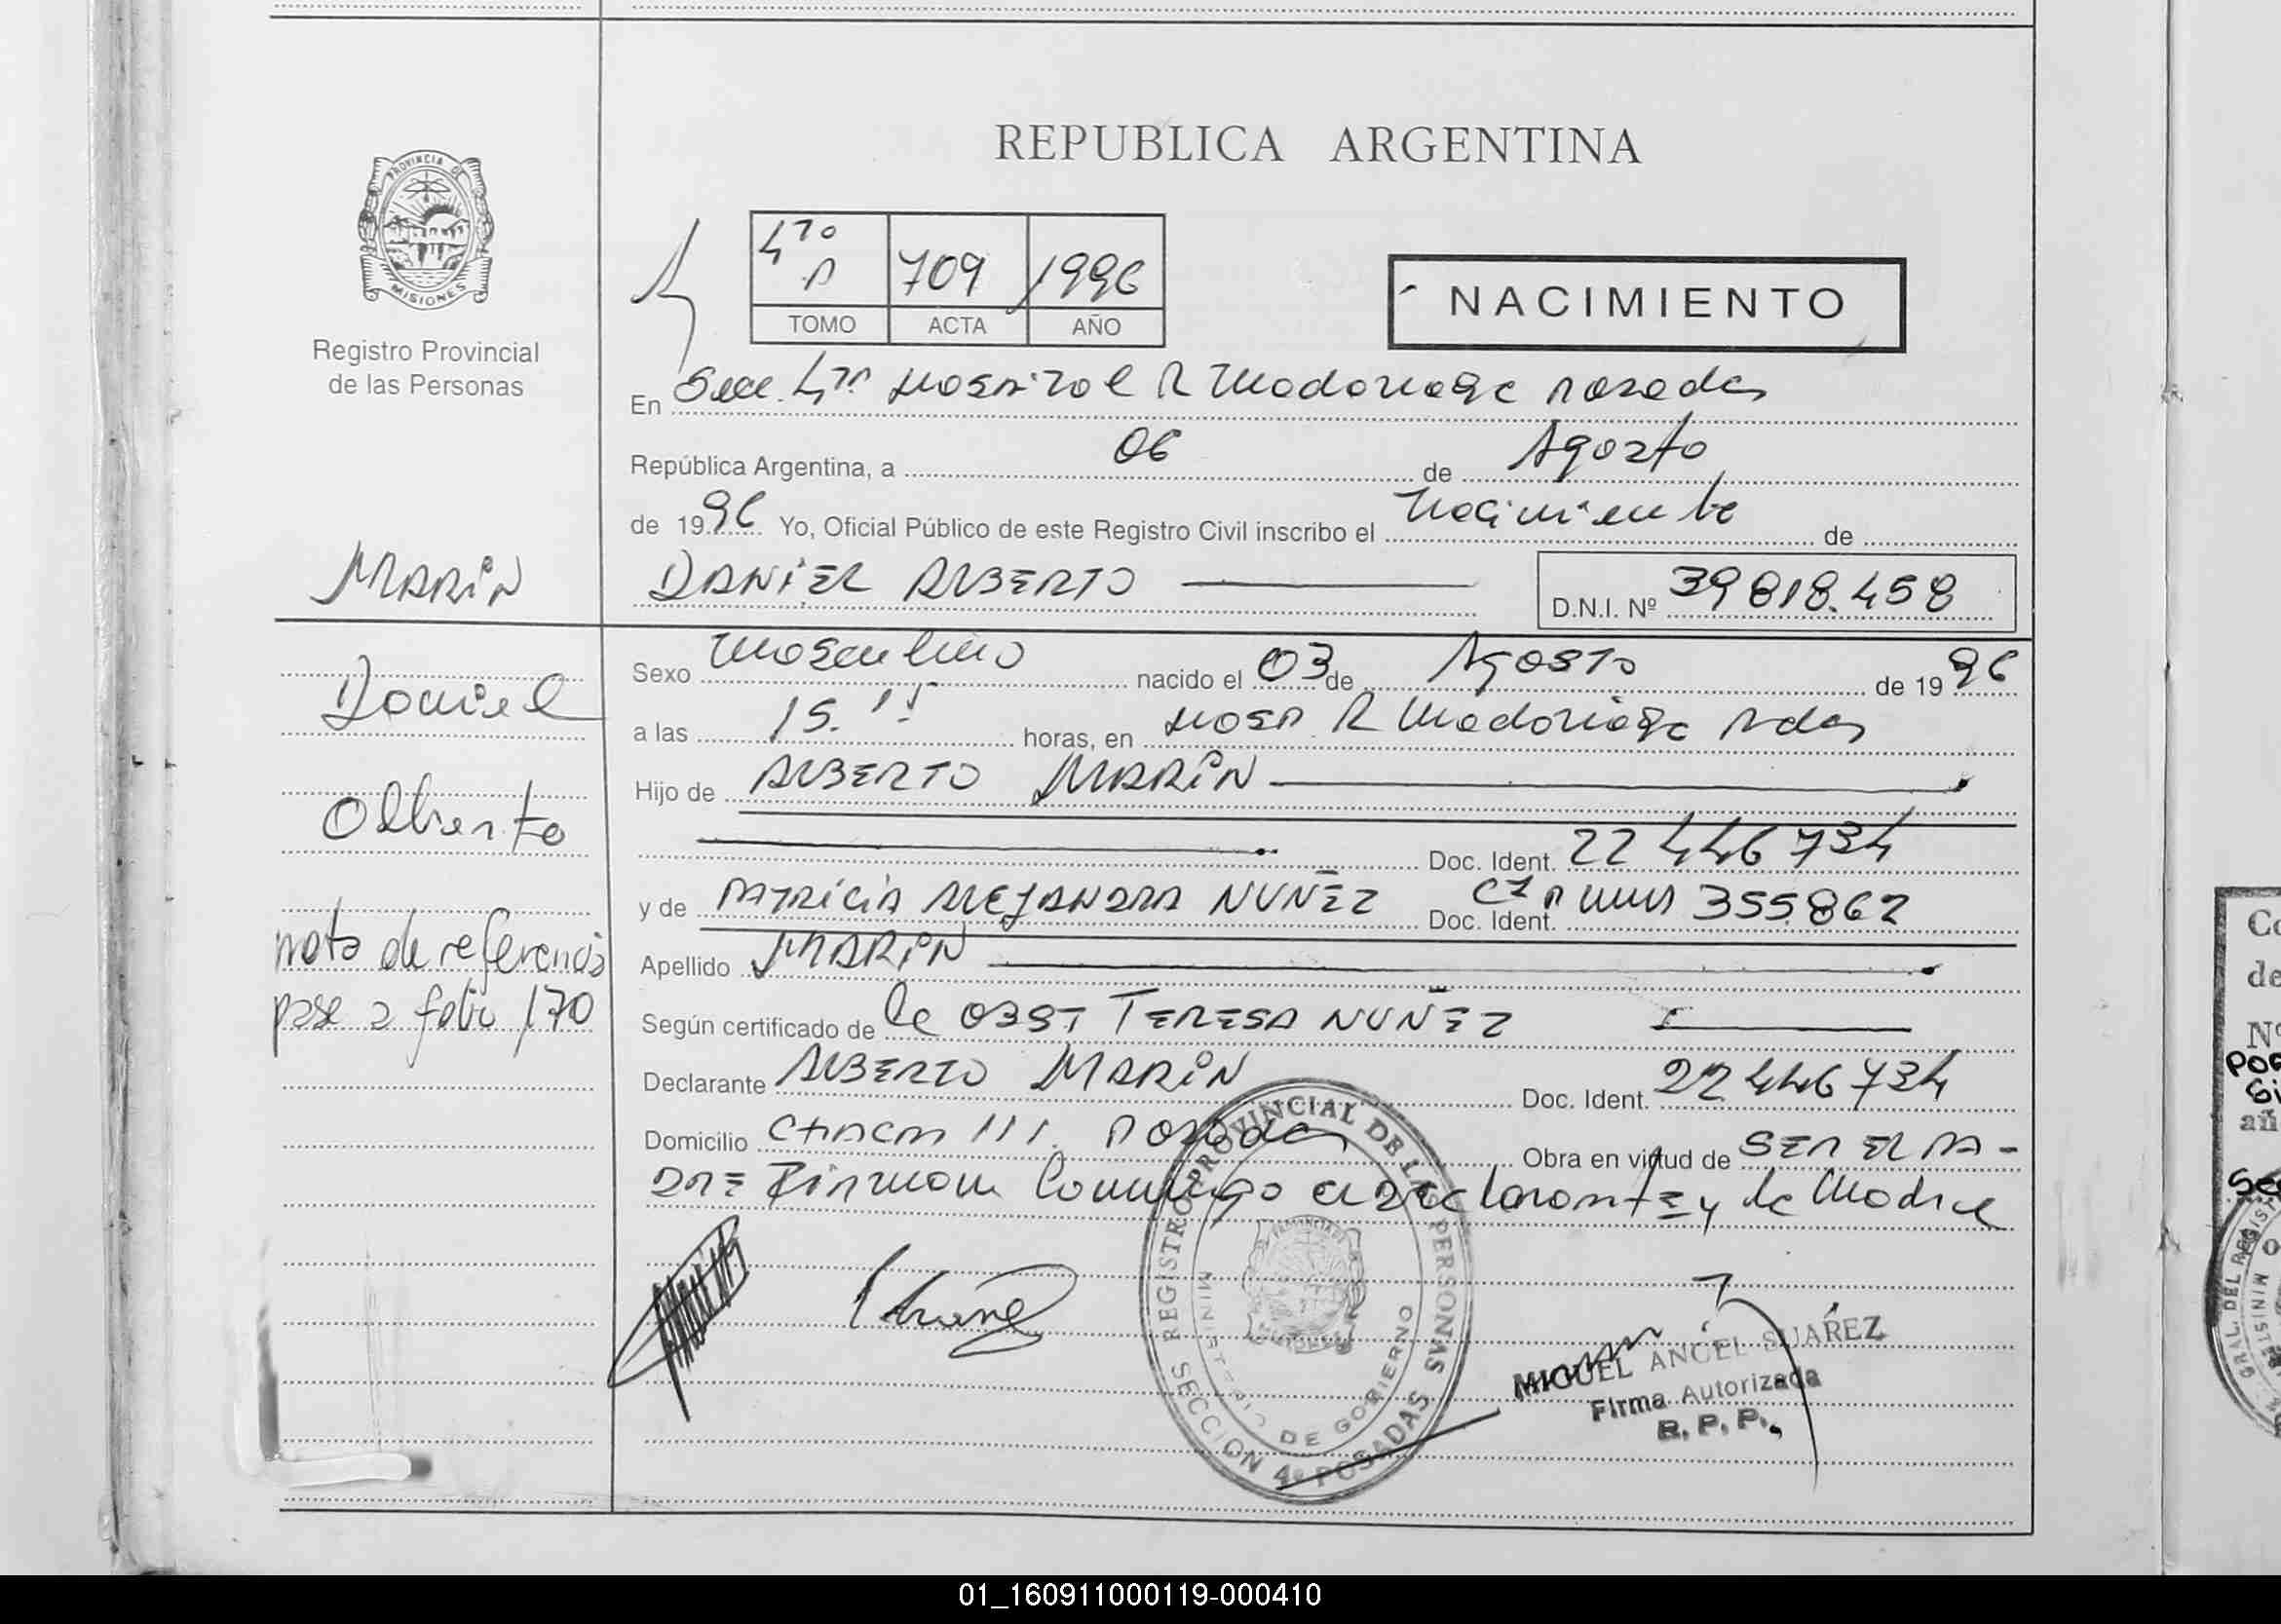 REPUBLICA ARGENTINA
PROVINCIA DE
MISIONES
Registro Provincial
de las Personas
4to
P 709 1996
TOMO ACTA AÑO
NACIMIENTO
En Secc. 4ta Hospital R Madariaga Posadas
República Argentina, a 06 de Agosto
de 1996 Yo, Oficial Público de este Registro Civil inscribo el Nacimiento de
MARiN
DANiEL ALBERTO
D.N.I. Nº 39818.458
Sexo Masculino nacido el 03 de Agosto de 1996
Daniel
a las 15.15 horas, en Hosp. R Madariaga Pdas
Hijo de ALBERTO MARiN
Alberto
Doc. Ident. 22 446 734
y de PATRiCiA ALEJANDRA NUÑEZ Doc. Ident. 355.862
nota de referencia
Apellido MARiN
pase a folio 170
Según certificado de la OBST TERESA NUÑEZ
Declarante ALBERTO MARiN Doc. Ident. 22.446734
Domicilio CHACRA 111. Posadas Obra en virtud de SER EL PA-
DRE Firman Conmigo el declarante y la Madre
REGISTRO PROVINCIAL DE LAS PERSONAS
MINISTERIO DE GOBIERNO
SECCION 4ª POSADAS
MIGUEL ANGEL SUAREZ
Firma Autorizada
R. P. P.
Co
de
Nº
POS
añ
GRAL. DEL REGIST
MINISTE
01_160911000119-000410